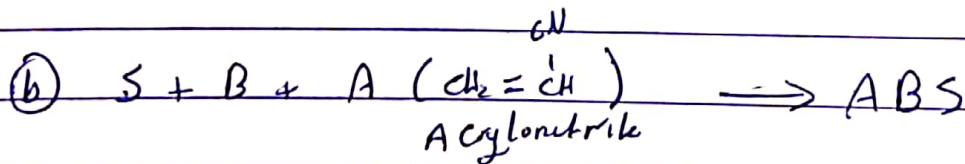 CN
(b) S + B + A ( CH₂ = CH ) ⟶ ABS
Acrylonitrile